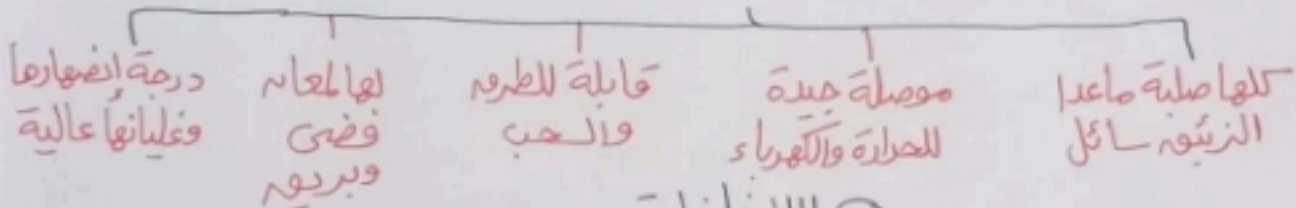 كلها صلبة ماعدا
الزئبق سائل
موصلة جيدة
للحرارة والكهرباء
قابلة للطرق
والسحب
لها لمعان
فضي
وبريق
درجة إنصهارها
وغليانها عالية